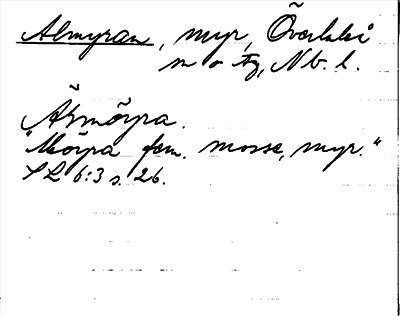 Almyran, myr, Överluleå
sn o tg, Nb. l.
Åkmörpa.
"Mörpa fem. mosse, myr."
SL 6:3 s. 26.